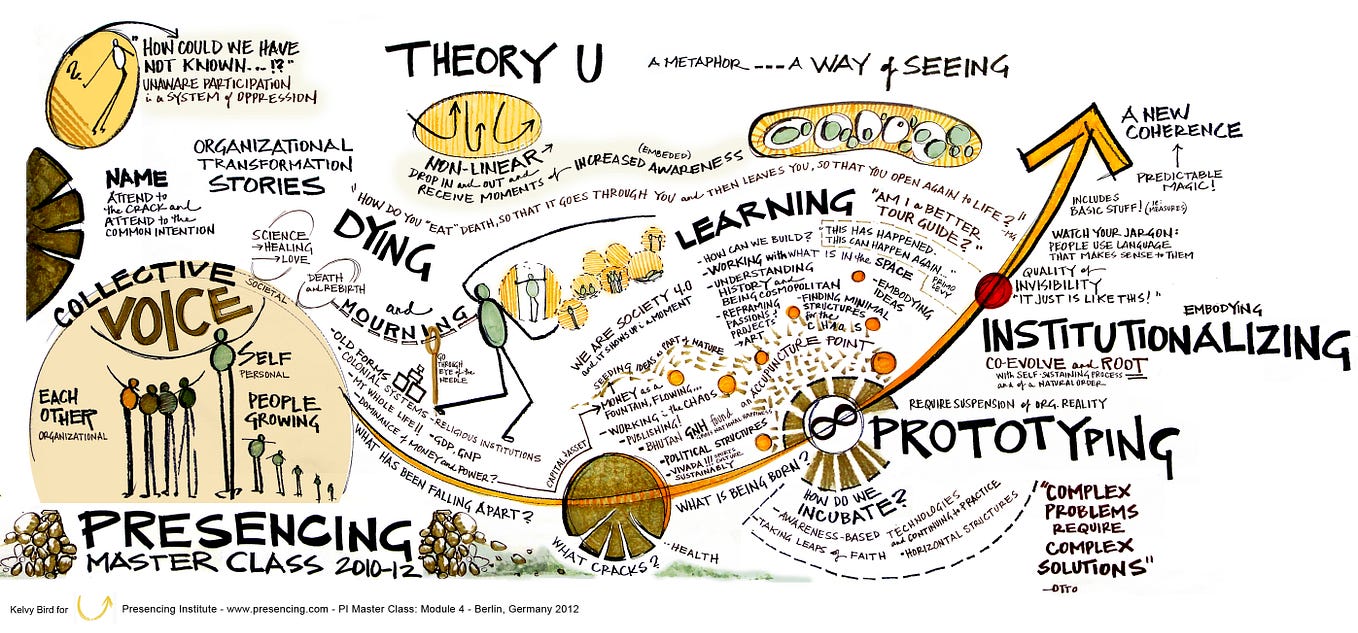 "HOW COULD WE HAVE
NOT KNOWN...!?"
UNAWARE PARTICIPATION
in a SYSTEM of OPPRESSION
THEORY U
A METAPHOR --- A WAY of SEEING
NON-LINEAR
DROP IN and OUT and
RECEIVE MOMENTS of INCREASED (EMBEDED) AWARENESS
A NEW
COHERENCE
PREDICTABLE
MAGIC!
INCLUDES
BASIC STUFF!
WATCH YOUR JARGON:
PEOPLE USE LANGUAGE
THAT MAKES SENSE to THEM
QUALITY of
INVISIBILITY
"IT JUST IS LIKE THIS!"
ORGANIZATIONAL
TRANSFORMATION
STORIES
NAME
ATTEND to
the CRACK and
ATTEND to the
COMMON INTENTION
SCIENCE
→HEALING
→LOVE
DEATH
and REBIRTH
COLLECTIVE
VOICE
SOCIETAL
SELF
PERSONAL
EACH
OTHER
ORGANIZATIONAL
PEOPLE
GROWING
"HOW DO YOU "EAT" DEATH, SO THAT IT GOES THROUGH YOU and THEN LEAVES YOU, SO THAT YOU OPEN AGAIN to LIFE?"
DYING
and
MOURNING
-OLD FORMS
-"COLONIAL SYSTEMS
-MY WHOLE LIFE!!
-DOMINANCE of MONEY and POWER?
-RELIGIOUS INSTITUTIONS
-GDP, GNP
GO
THROUGH
EYE of the
NEEDLE
WHAT HAS BEEN FALLING APART?
LEARNING
-HOW CAN WE BUILD?
-WORKING with WHAT IS IN the SPACE
-UNDERSTANDING
HISTORY and
BEING COSMOPOLITAN
-REFRAMING
PASSIONS &
PROJECTS
→ART
-FINDING MINIMAL
STRUCTURES
in the
CHAOS
-EMBODYING
IDEAS
"THIS HAS HAPPENED...
THIS CAN HAPPEN AGAIN..."
PRIMO
LEVY
"AM I a BETTER
TOUR GUIDE?"
WE ARE SOCIETY 4.0
and IT SHOWS UP in a MOMENT
SEEDING IDEAS as PART of NATURE
an ACCUPUNCTURE POINT
CAPITAL/ASSET
→MONEY as a
FOUNTAIN, FLOWING...
-WORKING in the CHAOS
-PUBLISHING!
-BHUTAN GNH found
GROSS NATIONAL HAPPINESS
-POLITICAL STRUCTURES
-VIVADA!!!
SUSTAINABLY
WHAT IS BEING BORN?
WHAT CRACKS?
HEALTH
EMBODYING
INSTITUTIONALIZING
CO-EVOLVE and ROOT
with SELF-SUSTAINING PROCESS
and of a NATURAL ORDER
REQUIRE SUSPENSION of ORG. REALITY
PROTOTYPING
HOW DO WE
INCUBATE?
-AWARENESS-BASED TECHNOLOGIES
and CONTINUING to PRACTICE
-TAKING LEAPS of FAITH
"HORIZONTAL STRUCTURES
"COMPLEX
PROBLEMS
REQUIRE
COMPLEX
SOLUTIONS"
-OTTO
PRESENCING
MASTER CLASS 2010-12
Kelvy Bird for Presencing Institute - www.presencing.com - PI Master Class: Module 4 - Berlin, Germany 2012